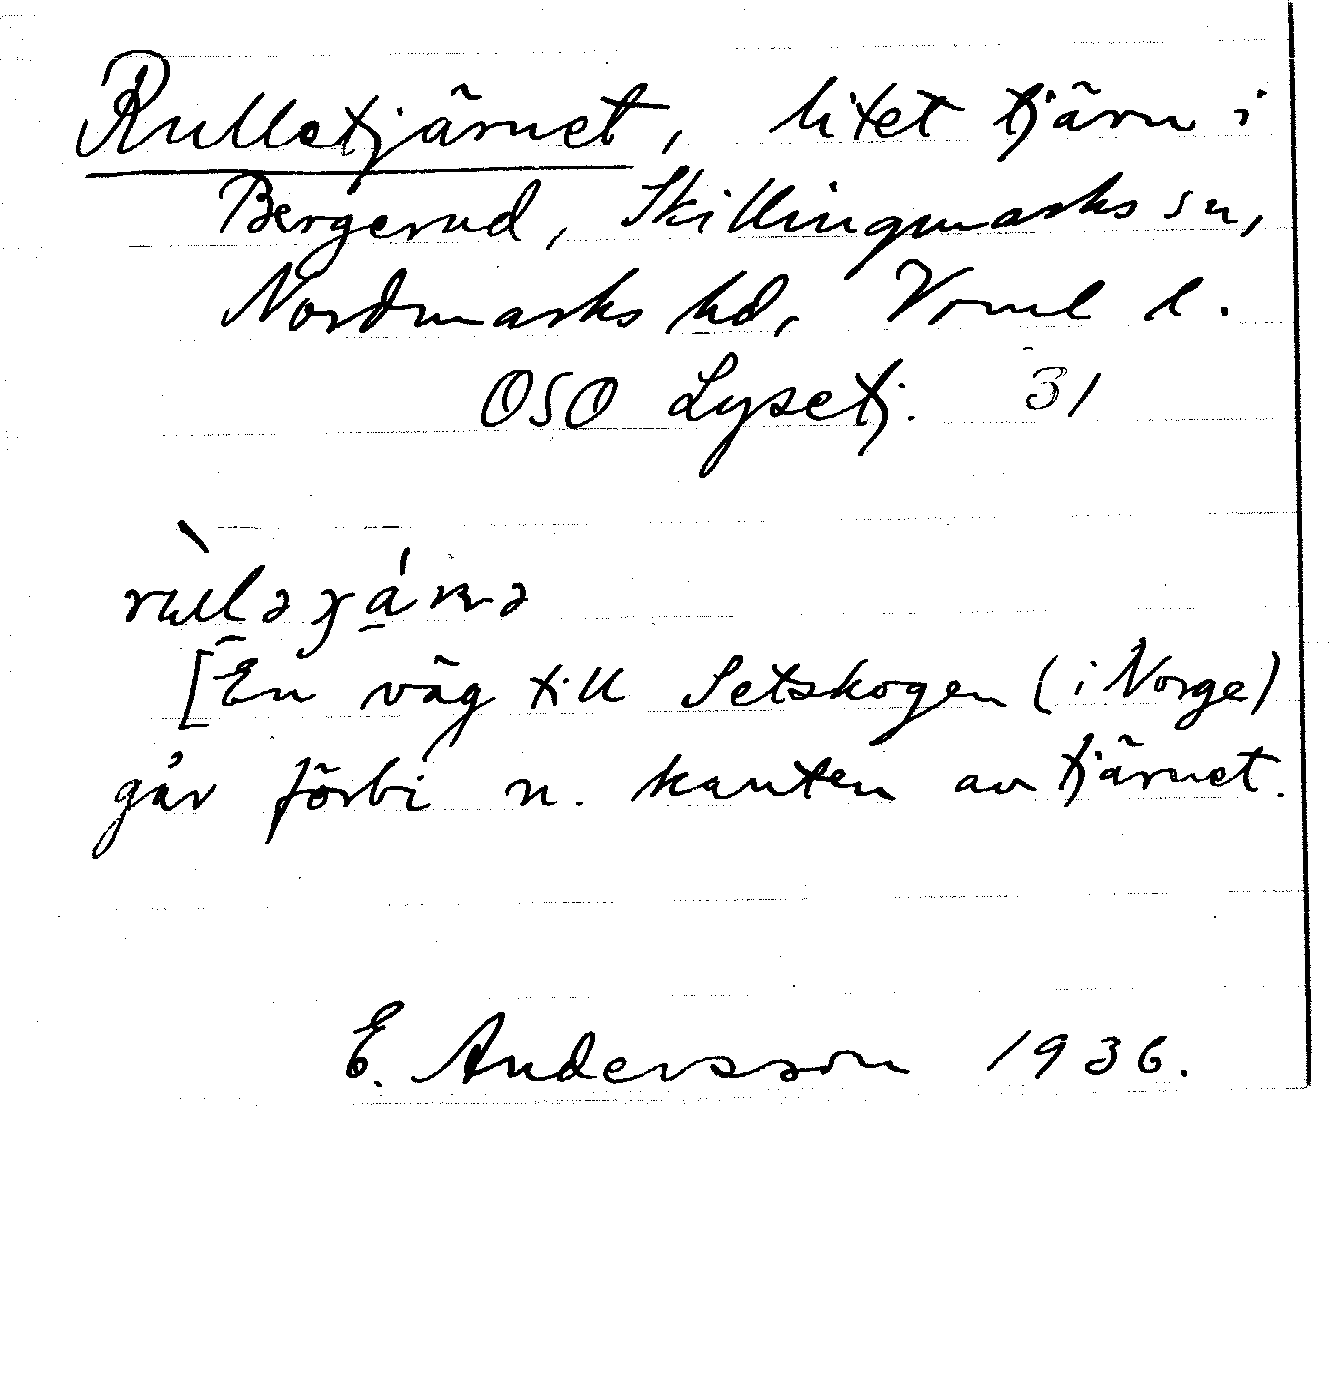 Rulletjärnet, litet tjärn i
Bergerud, Skillingmarks sn,
Nordmarks hd, Vrml l.
OSO Lysetj. 31
[En väg till Setskogen (i Norge)
går förbi n. kanten av tjärnet.
E. Andersson 1936.